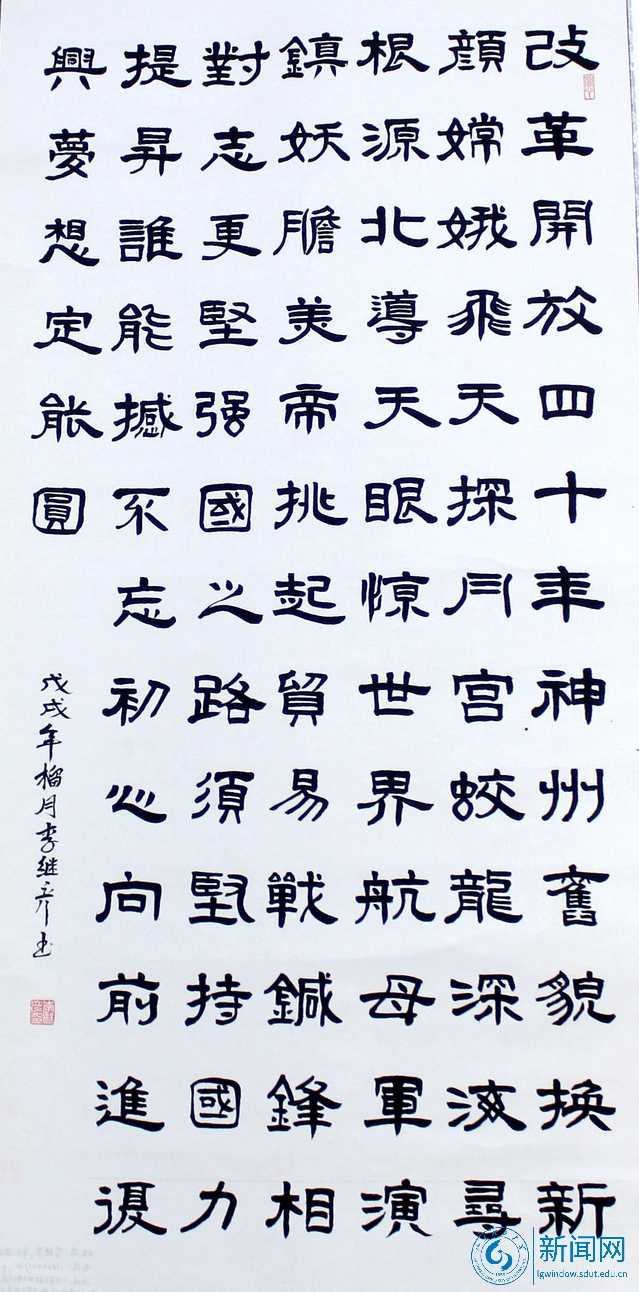 改革開放四十年神州舊貌换新
顔嫦娥飛天探月宮蛟龍深海尋
根源北導天眼惊世界航母軍演
鎮妖膽美帝挑起貿易戰鍼鋒相
對志更堅强國之路須堅持國力
提昇誰能撼不忘初心向前進復
興夢想定能圓
戊戌年榴月李继彦书
新闻网
lgwindow.sdut.edu.cn